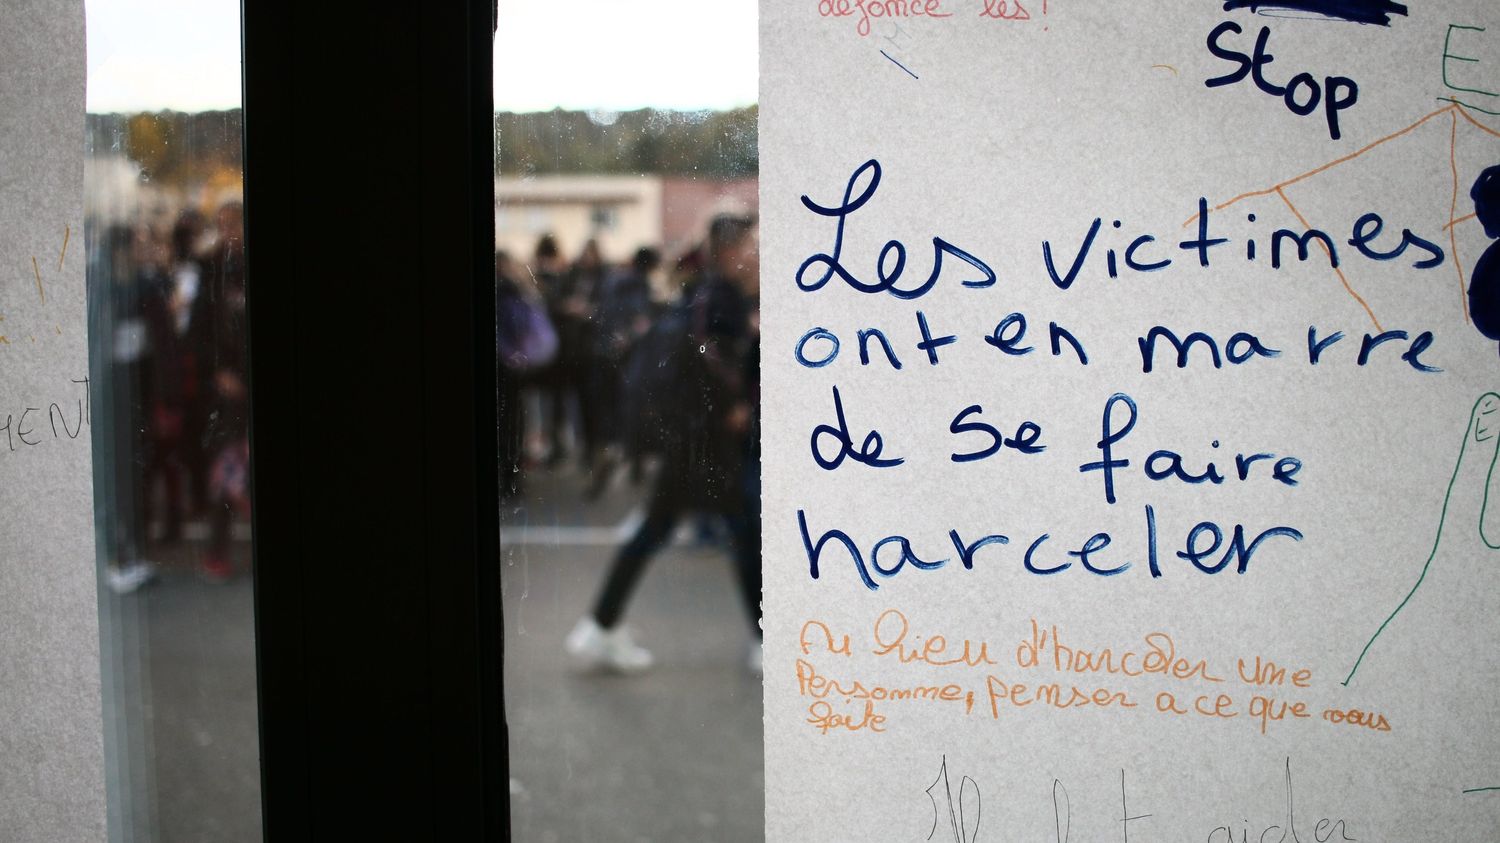 les!
Stop
E
Les victimes
ont en marre
de se faire
harceler
MENT
Au lieu d'harceler une
Personne, penser a ce que vous
faite
aider